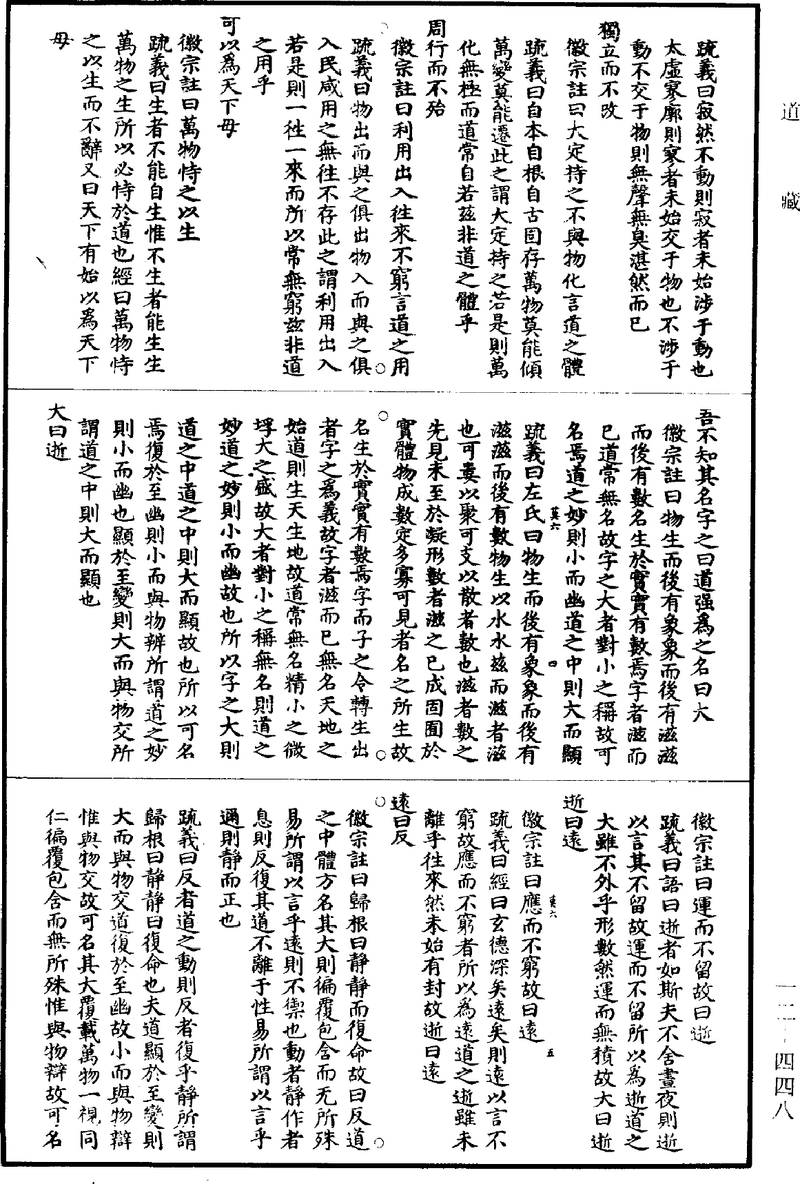 道藏
疏義曰寂然不動則寂者未始涉于動也
太虛寥廓則寥者未始交于物也不涉于
動不交于物則無聲無臭湛然而已
獨立而不改
徽宗註曰大定持之不與物化言道之體
疏義曰自本自根自古固存萬物莫能傾
萬變莫能遷此之謂大定持之若是則萬
化無極而道常自若茲非道之體乎
周行而不殆
徽宗註曰利用出入往來不窮言道之用
疏義曰物出而與之俱出物入而與之俱
入民咸用之無往不存此之謂利用出入
若是則一往一來而所以常無窮茲非道
之用乎
可以為天下母
徽宗註曰萬物恃之以生
疏義曰生者不能自生惟不生者能生生
萬物之生所以必恃於道也經曰萬物恃
之以生而不辭又曰天下有始以為天下
母
吾不知其名字之曰道强為之名曰大
徽宗註曰物生而後有象象而後有滋滋
而後有數名生於實實有數焉字者滋而
已道常無名故字之大者對小之稱故可
名焉道之妙則小而幽道之中則大而顯
莫六
四
疏義曰左氏曰物生而後有象象而後有
滋滋而後有數物生以水水茲而滋者滋
也可婁以聚可支以散者數也滋者數之
先見未至於凝形數者滋之已成固囿於
實體物成數定多寡可見者名之所生故
名生於實實有數焉字而子之令轉生出
者字之為義故字者滋而已無名天地之
始道則生天生地故道常無名精小之微
垺大之盛故大者對小之稱無名則道之
妙道之妙則小而幽故也所以字之大則
道之中道之中則大而顯故也所以可名
焉復於至幽則小而與物辨所謂道之妙
則小而幽也顯於至變則大而與物交所
謂道之中則大而顯也
大曰逝
徽宗註曰運而不留故曰逝
疏義曰語曰逝者如斯夫不舍晝夜則逝
以言其不留故運而不留所以為逝道之
大雖不外乎形數然運而無積故大曰逝
逝曰遠
徽宗註曰應而不窮故曰遠
莫六
五
疏義曰經曰玄德深矣遠矣則遠以言不
窮故應而不窮者所以為遠道之逝雖未
離乎往來然未始有封故逝曰遠
遠曰反
徽宗註曰歸根曰靜靜而復命故曰反道
之中體方名其大則徧覆包含而无所殊
易所謂以言乎遠則不禦也動者靜作者
息則反復其道不離于性易所謂以言乎
邇則靜而正也
疏義曰反者道之動則反者復乎靜所謂
歸根曰靜靜曰復命也夫道顯於至變則
大而與物交道復於至幽故小而與物辯
惟與物交故可名其大覆載萬物一視同
仁徧覆包含而無所殊惟與物辯故可名
一一-四四八